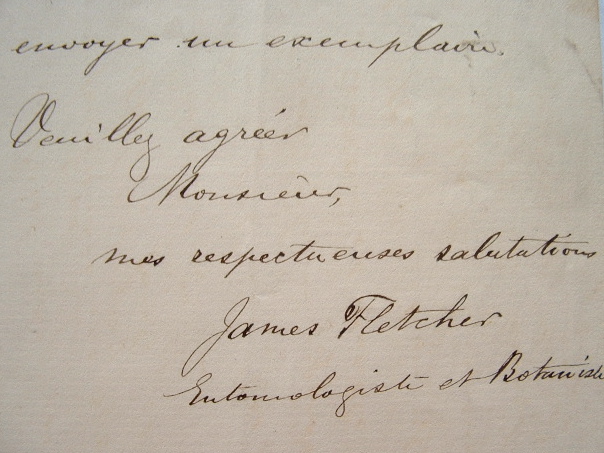 envoyer un exemplaire.
Veuillez agréer
Monsieur,
mes respectueuses salutations
James Fletcher
Entomologiste et Botaniste